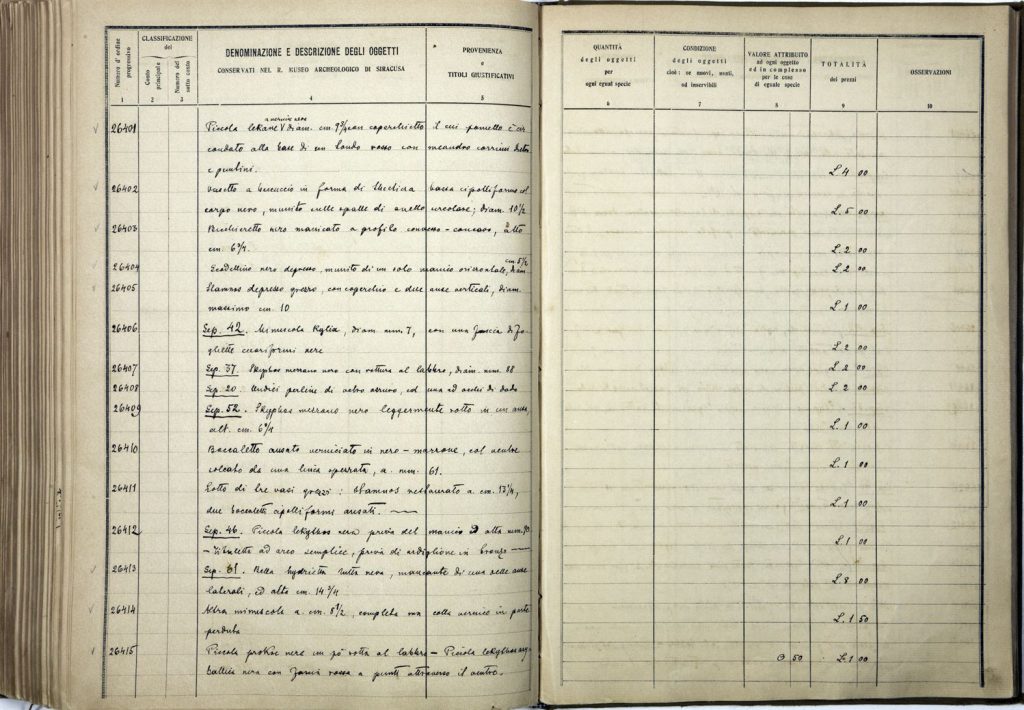 Numero d'ordine progressivo
CLASSIFICAZIONE del
Conto principale
Numero del sotto conto
DENOMINAZIONE E DESCRIZIONE DEGLI OGGETTI
CONSERVATI NEL R. MUSEO ARCHEOLOGICO DI SIRACUSA
PROVENIENZA
e
TITOLI GIUSTIFICATIVI
1 2 3 4 5
a vernice
26401 Piccola lekane diam. cm. 9 3/4 con coperchietto il cui pometto è cir
condato alla base di un tondo rosso con meandro corrente
e puntini.
26402 Vasetto a in forma di bassa cipolliforme col
corpo nero, munito sulle spalle di anello circolare; diam. 10 1/2
26403 Bicchieretto nero manicato a profilo convesso-concavo, alto
cm. 6 3/4.
cm. 5 1/2
26404 Scodellino nero depresso, munito di un solo manico orizzontale, diam.
26405 Stamnos depresso grezzo, con coperchio e due anse verticali, diam.
massimo cm. 10
26406 Sep. 42. Minuscola Kylix, diam. mm. 7, con una fascia di fo
gliette cuoriformi nere
26407 Sep. 37. Skyphos mezzano nero con rottura al labbro, diam. mm. 88
26408 Sep. 20. Undici perline di vetro azzurro, ed una ad occhi di dado
26409 Sep. 52. Skyphos mezzano nero leggermente rotto in un ansa,
alt. cm. 6 3/4
26410 Boccaletto ansato verniciato in nero-marrone, col ventre
solcato da una linea spezzata, a. mm. 61.
26411 Lotto di tre vasi grezzi: stamnos restaurato a. cm. 13 1/4,
due boccaletti cipolliformi ansati.
26412 Sep. 46. Piccola lekythos nera priva del manico ed alta mm. 90
- Fibuletta ad arco semplice, priva di ardiglione in bronzo
26413 Sep. 61. Bella hydrietta tutta nera, mancante di una delle anse
laterali, ed alta cm. 14 3/4
26414 Altra minuscola a. cm. 8 1/2, completa ma colla vernice in parte
perduta
26415 Piccola prokoe nera un pò rotta al labbro - Piccola lekythos ary
ballica nera con fascia rossa a punti attraverso il ventre.
QUANTITÀ
degli oggetti
per
ogni egual specie
CONDIZIONE
degli oggetti
cioè: se nuovi, usati,
od inservibili
VALORE ATTRIBUITO
ad ogni oggetto
ed in complesso
per le cose
di eguale specie
TOTALITÀ
dei prezzi
OSSERVAZIONI
6 7 8 9 10
L. 4 00
L. 5 00
L. 2 00
L. 2 00
L. 1 00
L. 2 00
L. 2 00
L. 2 00
L. 1 00
L. 1 00
L. 1 00
L. 1 00
L. 8 00
L. 1 50
0 50 L. 1 00